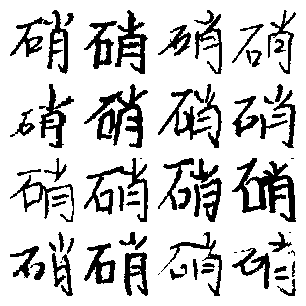 硝硝硝硝
硝硝硝硝
硝硝硝硝
硝硝硝硝